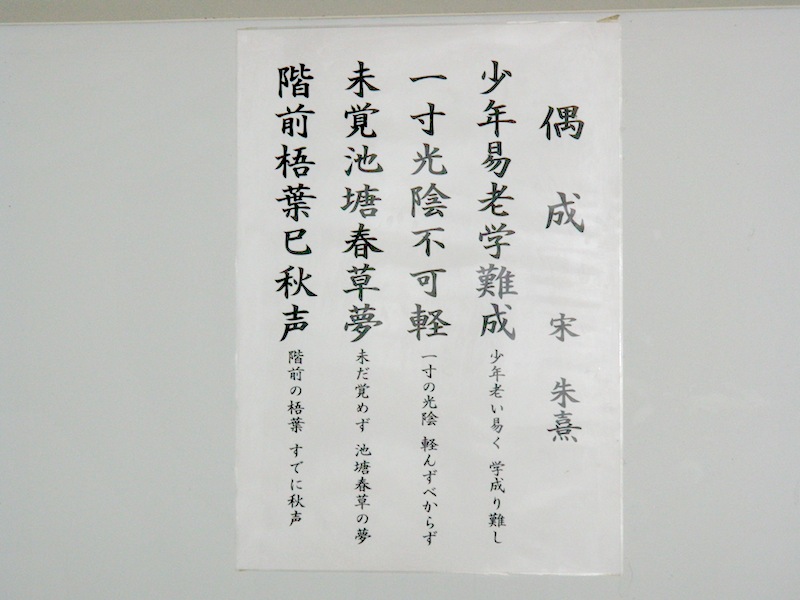 偶成 宋 朱熹
少年易老学難成 少年老い易く 学成り難し
一寸光陰不可軽 一寸の光陰 軽んずべからず
未覚池塘春草夢 未だ覚めず 池塘春草の夢
階前梧葉巳秋声 階前の梧葉 すでに秋声